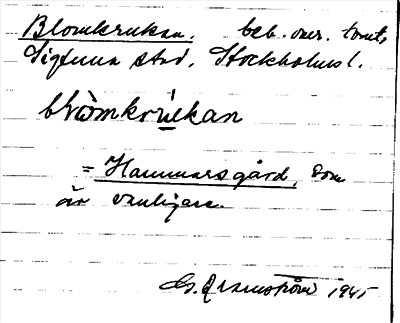 Blomkrukan, beb. over. tomt,
Sigtuna stad, Stockholms l.
blòmkrùkan
= Hammarsgård, som
är vanligare.
G. Ranström 1945